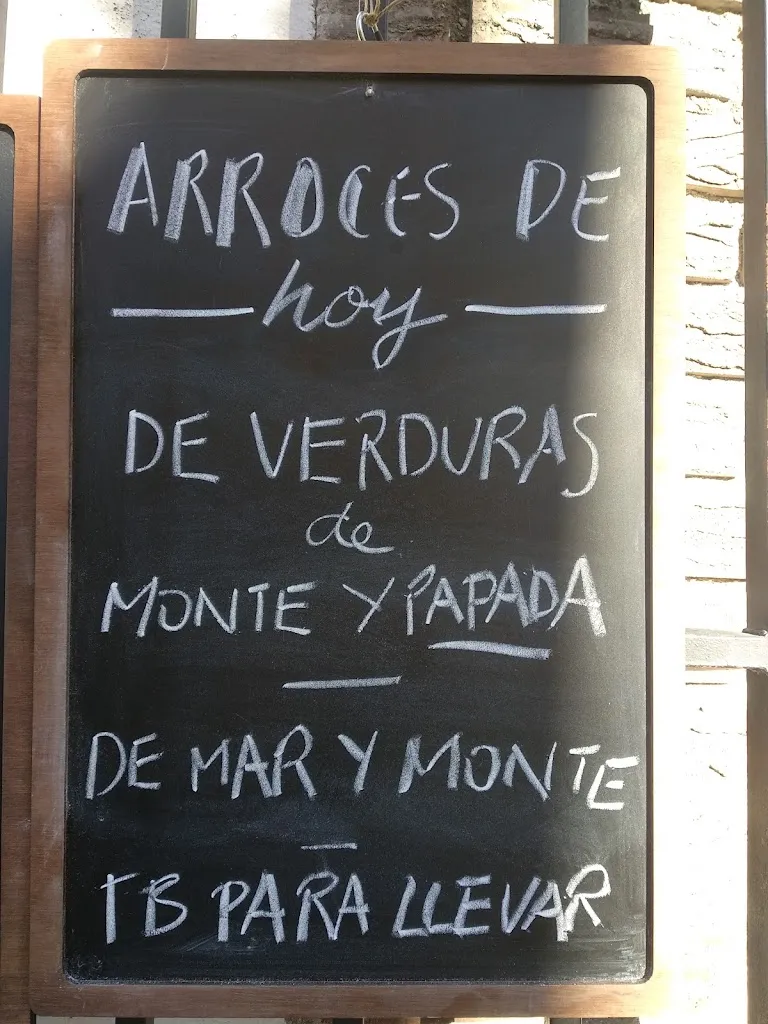 ARROCES DE
hoy
DE VERDURAS
de
MONTE Y PAPADA
DE MAR Y MONTE
TB PARA LLEVAR